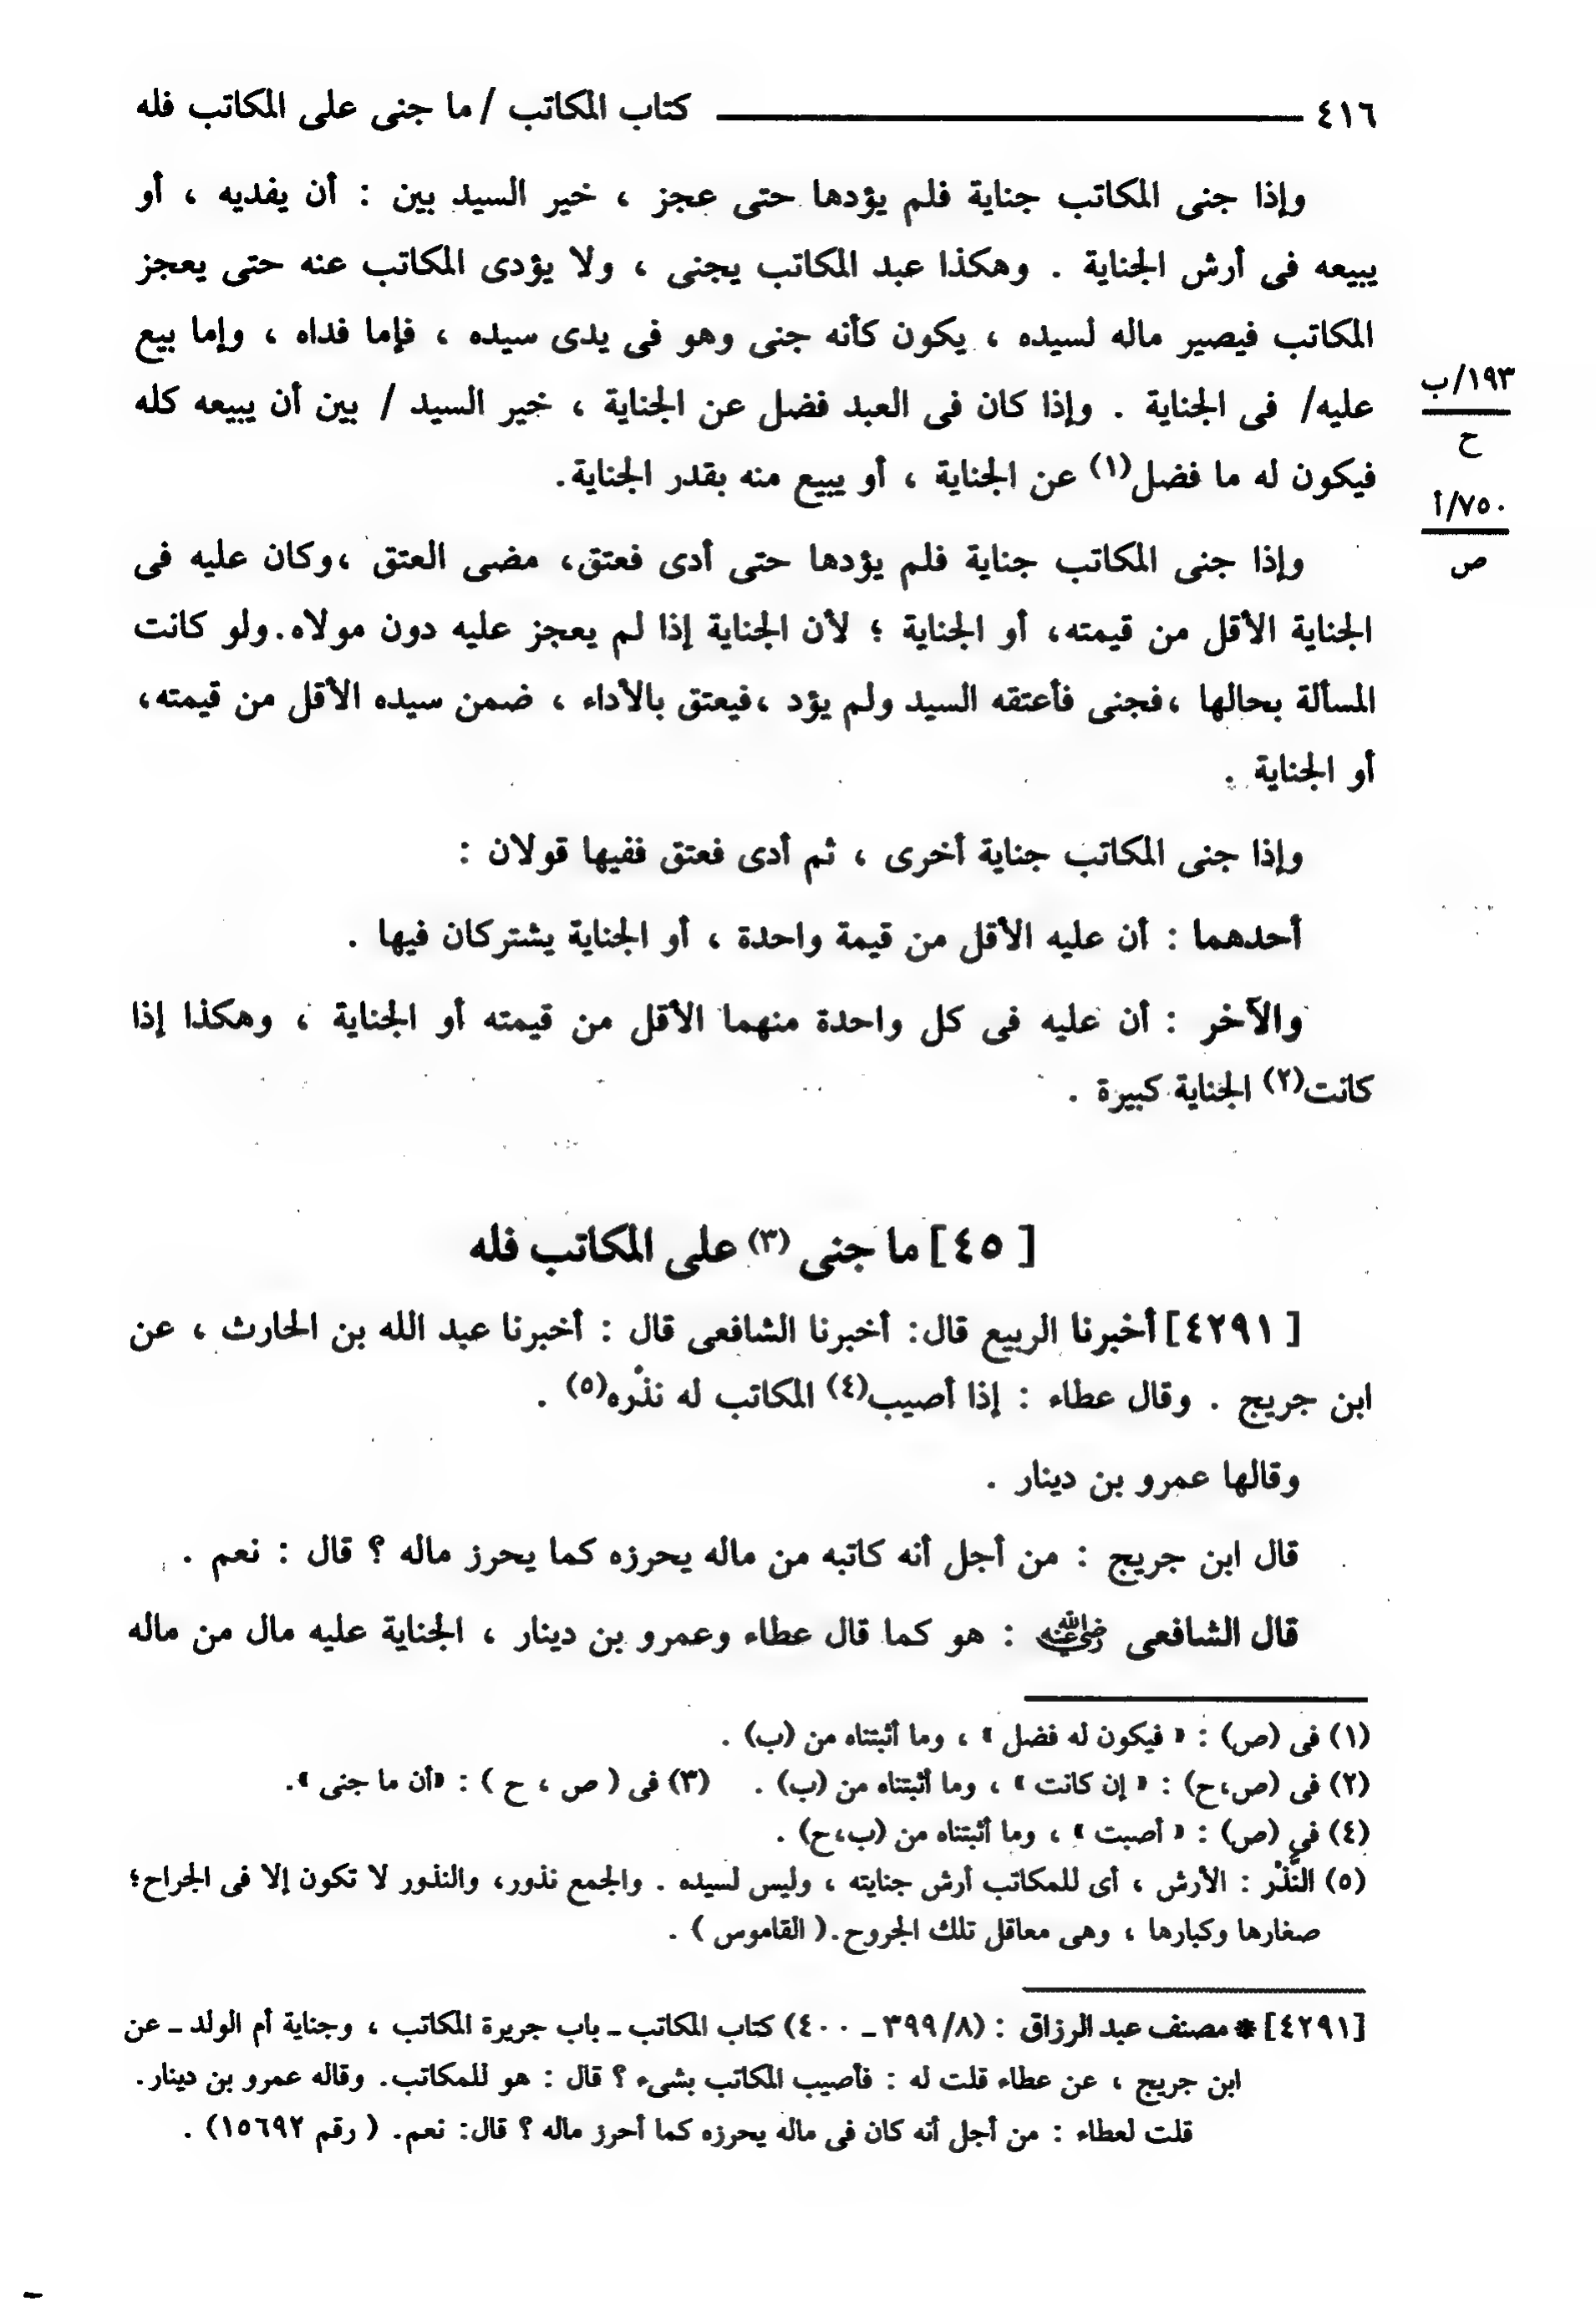 ٤١٦ ــــــــــــ كتاب المكاتب / ما جنى على المكاتب فله
وإذا جنى المكاتب جناية فلم يؤدها حتى عجز ، خير السيد بين : أن يفديه ، أو
يبيعه فى أرش الجناية . وهكذا عبد المكاتب يجنى ، ولا يؤدى المكاتب عنه حتى يعجز
المكاتب فيصير ماله لسيده ، يكون كأنه جنى وهو فى يدى سيده ، فإما فداه ، وإما بيع
١٩٣/ب
عليه/ فى الجناية . وإذا كان فى العبد فضل عن الجناية ، خير السيد / بين أن يبيعه كله
ح
فيكون له ما فضل(١) عن الجناية ، أو يبيع منه بقدر الجناية.
٧٥٠/أ
وإذا جنى المكاتب جناية فلم يؤدها حتى أدى فعتق، مضى العتق ،وكان عليه فى
ص
الجناية الأقل من قيمته، أو الجناية ؛ لأن الجناية إذا لم يعجز عليه دون مولاه.ولو كانت
المسألة بحالها ،فجنى فأعتقه السيد ولم يؤد ،فيعتق بالأداء ، ضمن سيده الأقل من قيمته،
أو الجناية .
وإذا جنى المكاتب جناية أخرى ، ثم أدى فعتق ففيها قولان :
أحدهما : أن عليه الأقل من قيمة واحدة ، أو الجناية يشتركان فيها .
والآخر : أن عليه فى كل واحدة منهما الأقل من قيمته أو الجناية ، وهكذا إذا
كانت(٢) الجناية كبيرة .
[ ٤٥ ] ما جنى (٣) على المكاتب فله
[ ٤٢٩١ ] أخبرنا الربيع قال: أخبرنا الشافعى قال : أخبرنا عبد الله بن الحارث ، عن
ابن جريج . وقال عطاء : إذا أصيب(٤) المكاتب له نذْره(٥) .
وقالها عمرو بن دينار .
قال ابن جريج : من أجل أنه كاتبه من ماله يحرزه كما يحرز ماله ؟ قال : نعم .
قال الشافعى رضي الله عنه : هو كما قال عطاء وعمرو بن دينار ، الجناية عليه مال من ماله
(١) فى (ص) : « فيكون له فضل » ، وما أثبتناه من (ب) .
(٢) فى (ص،ح) : « إن كانت » ، وما أثبتناه من (ب) . (٣) فى ( ص ، ح ) : «أن ما جنى ».
(٤) فى (ص) : « أصبت » ، وما أثبتناه من (ب،ح) .
(٥) النَّذْر : الأرش ، أى للمكاتب أرش جنايته ، وليس لسيده . والجمع نذور، والنذور لا تكون إلا فى الجراح؛
صغارها وكبارها ، وهى معاقل تلك الجروح.( القاموس ) .
[٤٢٩١] * مصنف عبد الرزاق : (٣٩٩/٨ ـ ٤٠٠) كتاب المكاتب ـ باب جريرة المكاتب ، وجناية أم الولد ـ عن
ابن جريج ، عن عطاء قلت له : فأصيب المكاتب بشىء ؟ قال : هو للمكاتب. وقاله عمرو بن دينار.
قلت لعطاء : من أجل أنه كان فى ماله يحرزه كما أحرز ماله ؟ قال: نعم. ( رقم ١٥٦٩٢) .